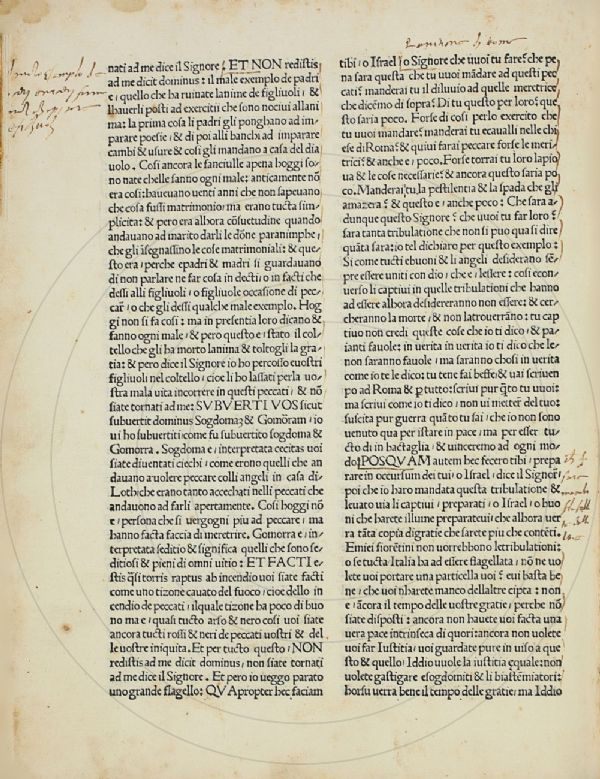 nati ad me dice il Signore. ET NON redistis
ad me dicit dominus: il male exemplo de padri
e, quello che ha ruinate lanime de figliuoli, &
lhauerli posti ad exercitii che sono nociui allani
ma: la prima cosa li padri gli ponghano ad im-
parare poesie, & di poi alli banchi ad imparare
cambi & usure & cosi gli mandano a casa del dia
uolo. Cosi ancora le fanciulle apena hoggi so-
no nate che lle sanno ogni male: anticamente nõ
era cosi: haueuano uenti anni che non sapeuano
che cosa fussi matrimonio, ma erano tucta sim-
plicita: & pero era alhora cõsuetudine quando
andauano ad marito darli le dõne paranimphe,
che gli ïsegnassïno le cose matrimoniali: & que-
sto era, perche epadri & madri si guardauano
di non parlare ne far cosa in decti, o in facti che
dessi alli figliuoli, o figliuole occasione di pec-
car, o che gli dessi qualche male exemplo. Hog
gi non si fa cosi: ma in presentia loro dicano &
fanno ogni male, & pero questo e, stato il col-
tello che gli ha morto lanima & toltogli la gra-
tia: & pero dice il Signore io ho percosso euostri
figliuoli nel coltello, cioe li ho lassati perla uo-
stra mala uita incorrere in questi peccati, & nõ
siate tornati ad me: SVBVERTI VOS sicut
subuertit dominus Sogdomã & Gomõram, io
ui ho subuertiti come fu subuertito sogdoma &
Gomorra. Sogdoma e, interpretata cecitas uoi
siate diuentati ciechi, come erono quelli che an
dauano a uolere peccare colli angeli in casa di-
Loth: che erano tanto accechati nelli peccati che
andauono ad farli apertamente. Cosi hoggi nõ
e, persona che si uergogni piu ad peccare, ma
hanno facta faccia di meretrice. Gomorra e, in-
terpretata seditio & significa quelli che sono se-
ditiosi & pieni di omni uitio: ET FACTI e-
stis qsi torris raptus ab incendio uoi siate facti
come uno tizone cauato del fuoco, cioe dello in
cendio de peccati, ilquale tizone ha poco di buo
no ma e, quasi tucto arso & nero cosi uoi siate
ancora tucti rossi & neri de peccati uostri & del
le uostre iniquita. Et per tucto questo, NON
redistis ad me dicit dominus, non siate tornati
ad me dice il Signore. Et pero io ueggo parato
uno grande flagello: QVApropter hec faciam
tibi, o Israel, o Signore che uuoi tu fare? che pe
na sara questa che tu uuoi mãdare ad questi pec
cati? manderai tu il diluuio ad quelle meretrice
che dicẽmo di sopra? Di tu questo per loro? que
sto saria poco. Forse di cosi perlo exercito che
tu uuoi mandare? manderai tu ecaualli nelle chi
ese di Roma? & quiui farai peccare forse le meri-
trici? & anche e, poco. Forse torrai tu loro lapio
ua & le cose necessarie? & ancora questo saria po
co. Manderai, tu, la pestilentia & la spada che gli
amazera? & questo e, anche poco: Che sara a-
dunque questo Signore? che uuoi tu far loro?
sara tanta tribulatione che non si puo quasi dire
quãta sara: io tel dichiaro per questo exemplo:
Si come tucti ebuoni & li angeli desiderano sẽ-
pre essere uniti con dio, che e, lessere: cosi econ-
uerso li captiui in quelle tribulationi che hanno
ad essere alhora desidereranno non essere: & cer-
cheranno la morte, & non latrouerrãno: tu cap
tiuo non credi queste cose che io ti dico, & pa-
ianti fauole: in uerita in uerita io ti dico che le-
non saranno fauole, ma saranno chosi in uerita
come io te le dico: tu tene fai beffe, & uai scriuen
po ad Roma & p tutto: scriui pur qto tu uuoi:
ma scriui come io ti dico, non ui metter del tuo:
suscita pur guerra quãto tu sai, che io non sono
uenuto qua per istare in pace, ma per esser tu-
cto di in bactaglia, & uinceremo ad ogni mo-
do. POSQVAM autem hec fecero tibi, prepa
rare in occursum dei tui, o Israel, dice il Signor,
poi che io haro mandata questa tribulatione &
leuato uia li captiui, preparati, o Israel, o buo
ni che harete illume preparateui, che alhora uer
ra tãta copia digratie che sarete piu che contẽti.
Emiei fiorẽtini non uorrebbono letribulationi:
o se tucta Italia ha ad essere flagellata, nõ ne uo-
lete uoi portare una particella uoi? eui basta be
ne, che uoi nharete manco dellaltre cipta: non
e, ãcora il tempo delle uostre gratie, perche nõ
siate disposti: ancora non hauete uoi facta una
uera pace intrinseca di quori: ancora non uolete
uoi far Iustitia, uoi guardate pure in uiso a que
sto & quello, Iddio uuole la iustitia equale: non
uolete gastigare esogdomiti & li biastẽmiatori:
horsu uerra bene il tempo delle gratie, ma Iddio